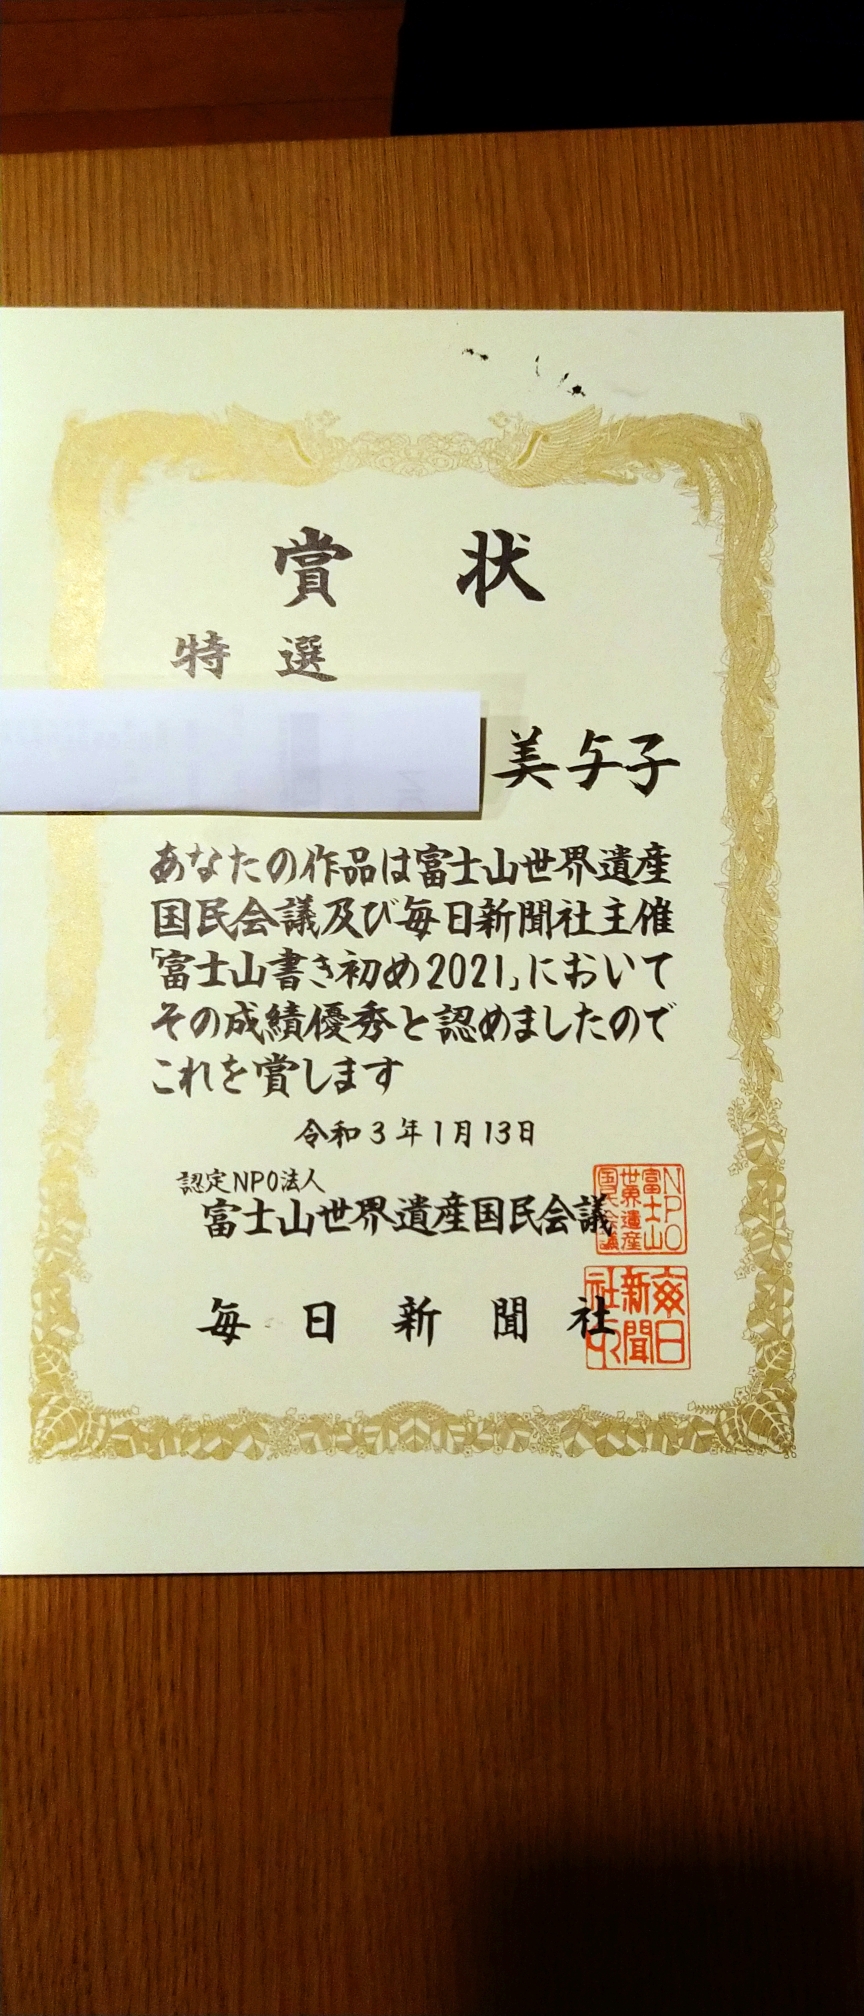 賞状
特選
美与子
あなたの作品は富士山世界遺産
国民会議及び毎日新聞社主催
「富士山書き初め2021」において
その成績優秀と認めましたので
これを賞します
令和3年1月13日
認定NPO法人
富士山世界遺産国民会議
NPO富士山世界遺産国民会議
毎日新聞社
毎日新聞社印